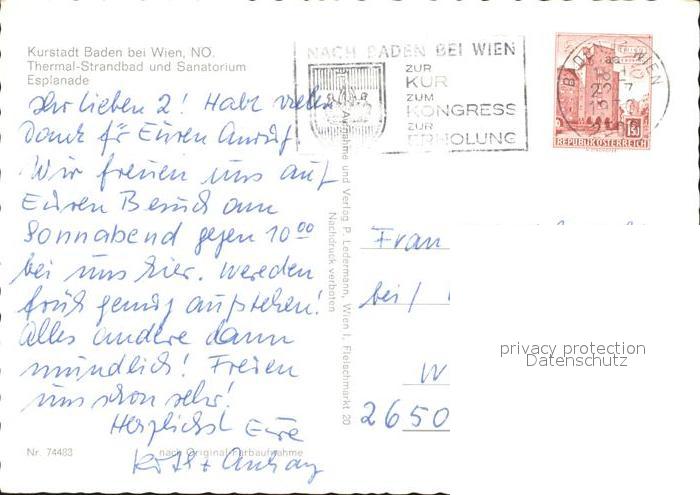 Kurstadt Baden bei Wien, NO.
Thermal-Strandbad und Sanatorium
Esplanade
NACH BADEN BEI WIEN
ZUR
KUR
ZUM
KONGRESS
ZUR
ERHOLUNG
BADEN WIEN
REPUBLIK ÖSTERREICH
Ihr lieben 2! Habt vielen
Dank für Euren Anruf
Wir freuen uns auf
Euren Besuch am
Sonnabend gegen 10⁰⁰
bei uns hier. Wereden
früh genug aufstehen!
Alles andere dann
mündlich! Freuen
uns schon sehr!
Herzlichst Eure
Nr. 74483
nach Original-Farbaufnahme
Aufnahme und Verlag P. Ledermann, Wien I, Fleischmarkt 20
Nachdruck verboten
Frau
bei /
W
2650
privacy protection
Datenschutz